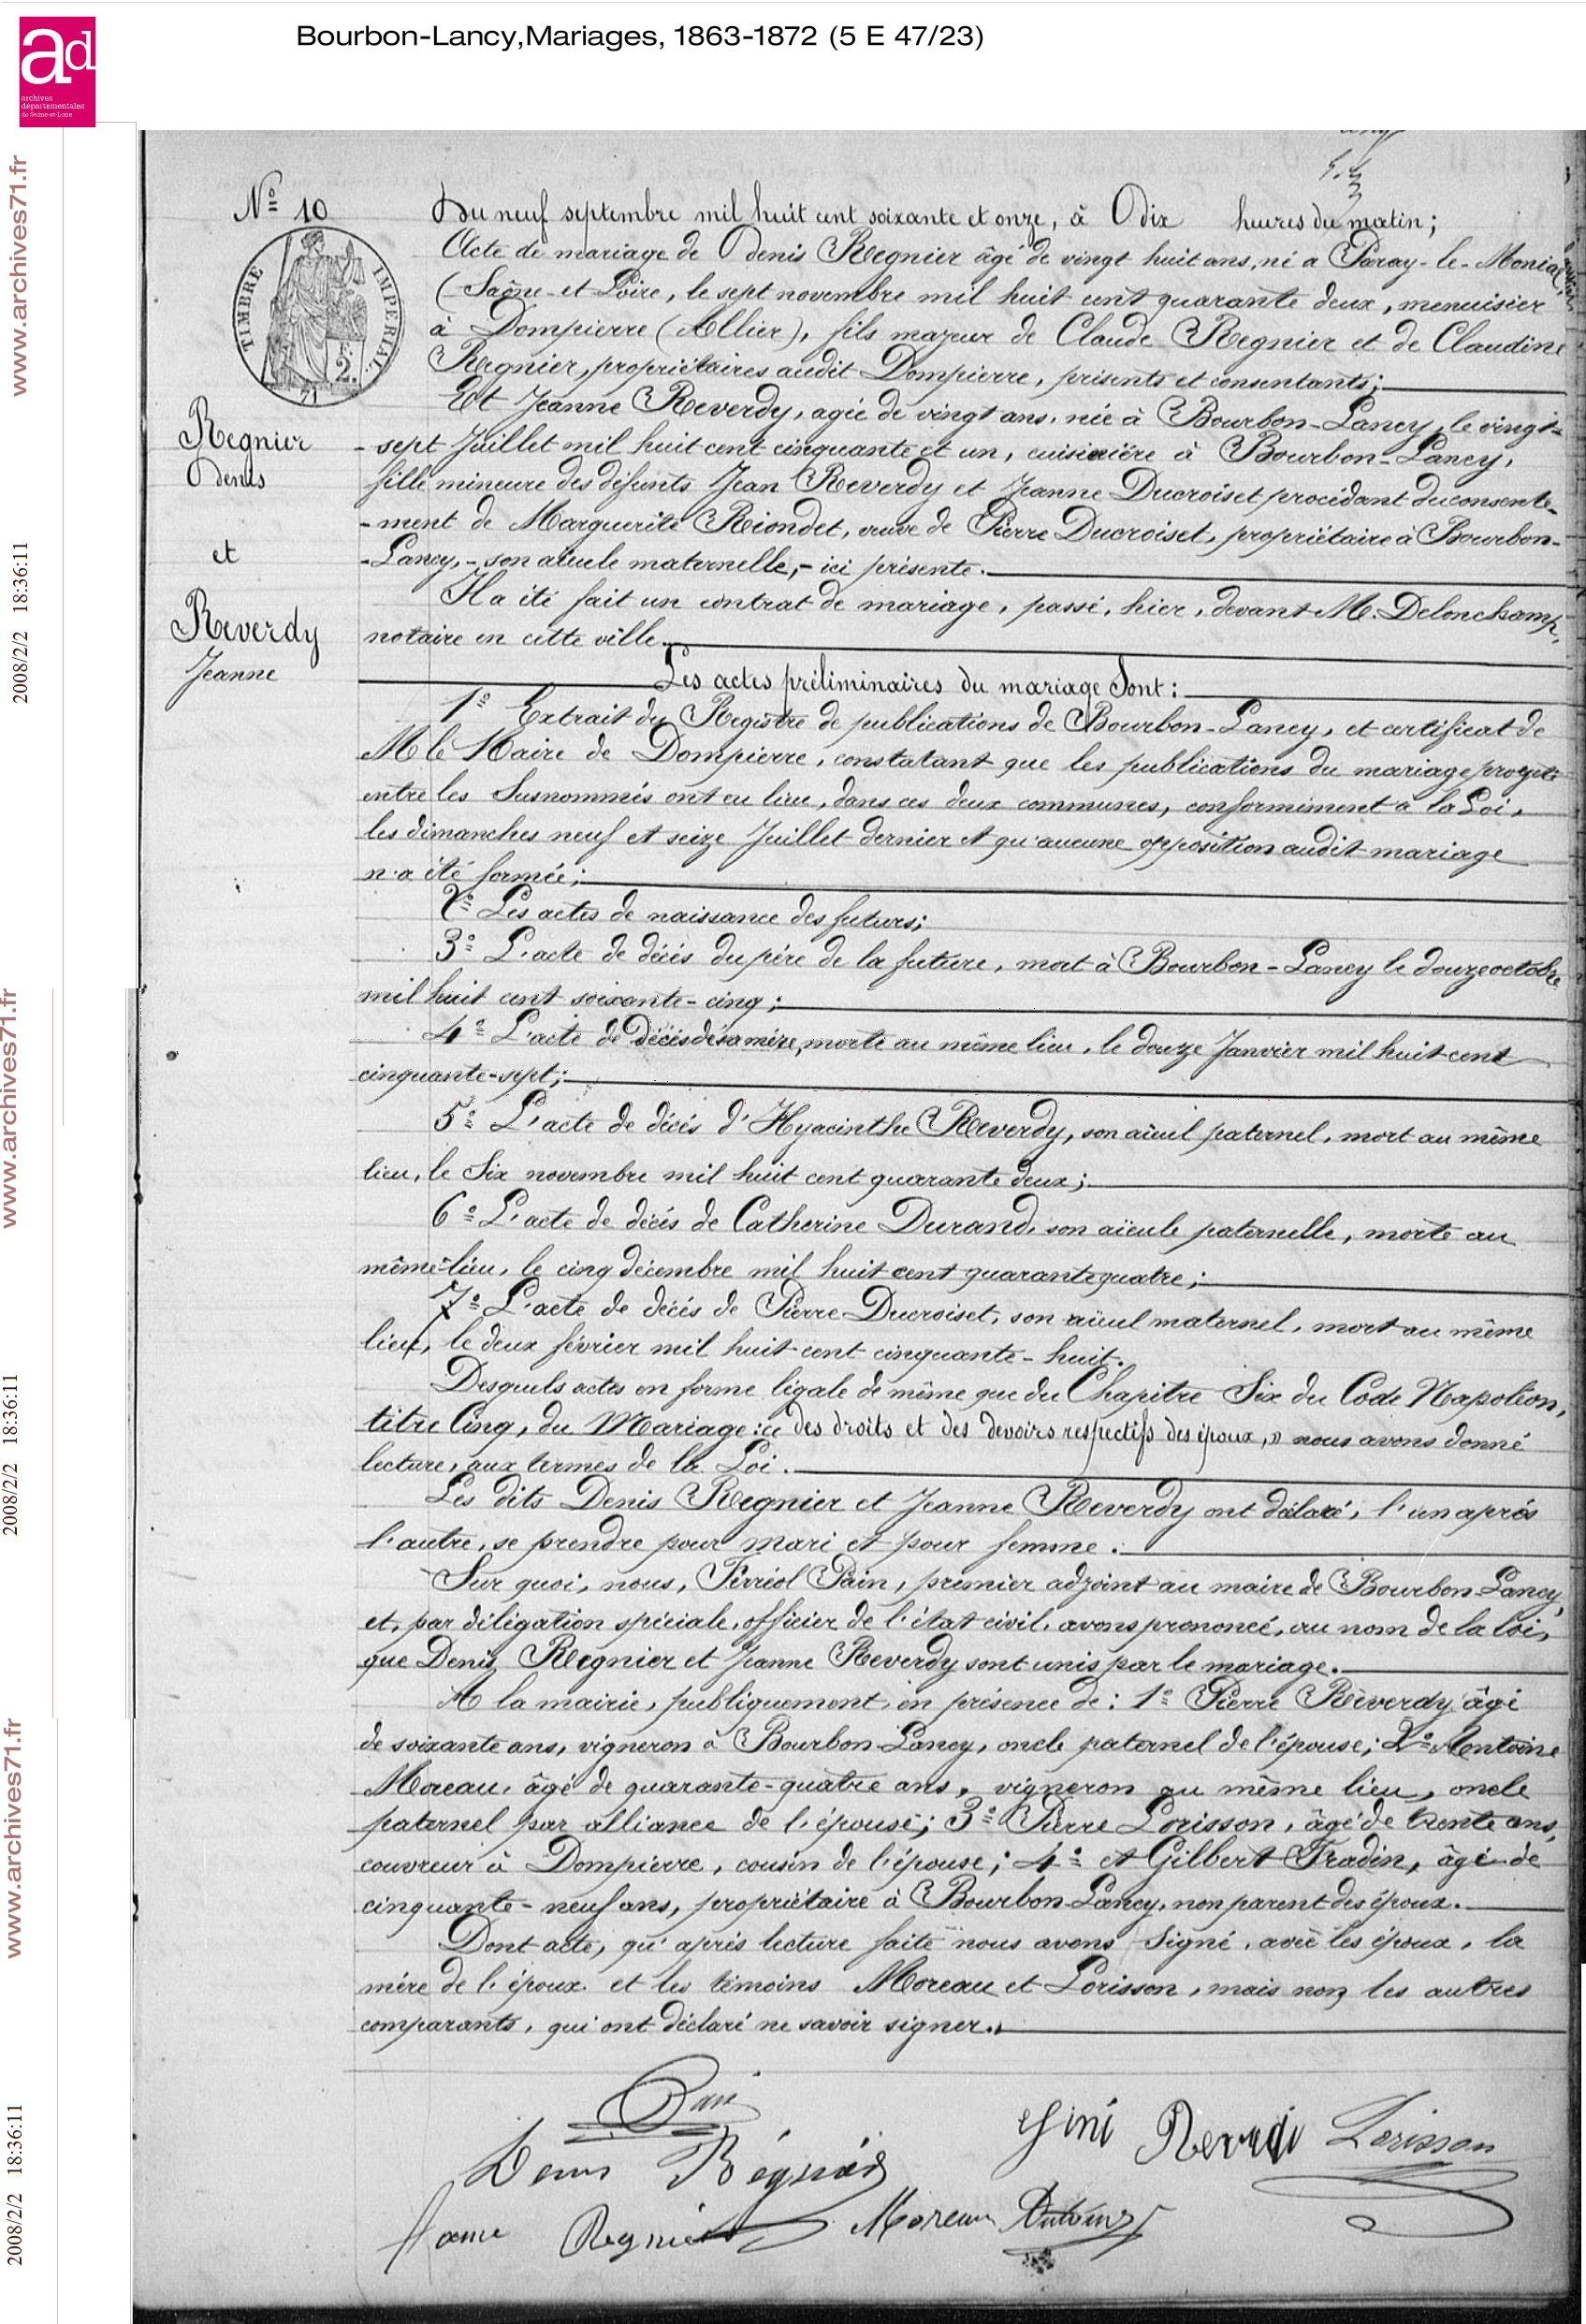 Bourbon-Lancy,Mariages, 1863-1872 (5 E 47/23)
ad
archives
départementales
de Saône-et-Loire
www.archives71.fr
2008/2/2 18:36:11
www.archives71.fr
2008/2/2 18:36:11
www.archives71.fr
2008/2/2 18:36:11
Nº 10
TIMBRE IMPERIAL
2.
71
Regnier
Denis
et
Reverdy
Jeanne
Du neuf septembre mil huit cent soixante et onze, à dix heures du matin;
Acte de mariage de Denis Regnier âgé de vingt huit ans, né à Paray-le-Monial
(Saône-et-Loire, le sept novembre mil huit cent quarante deux, menuisier
à Dompierre (Allier), fils majeur de Claude Regnier et de Claudine
Regnier, propriétaires audit Dompierre, présents et consentants;
Et Jeanne Reverdy, agée de vingt ans, née à Bourbon-Lancy, le vingt-
-sept Juillet mil huit cent cinquante et un, cuisinière à Bourbon-Lancy,
fille mineure des défunts Jean Reverdy et Jeanne Ducroiset procédant du consente-
-ment de Marguerite Riondet, veuve de Pierre Ducroiset, propriétaire à Bourbon-
-Lancy,- son aïeule maternelle,- ici présente.
Il a été fait un contrat de mariage, passé, hier, devant M. Delonchamp,
notaire en cette ville.
Les actes préliminaires du mariage sont:
1º Extrait du Registre de publications de Bourbon-Lancy, et certificat de
M le Maire de Dompierre, constatant que les publications du mariage projeté
entre les susnommés ont eu lieu, dans ces deux communes, conformément à la Loi,
les dimanches neuf et seize Juillet dernier et qu'aucune opposition audit mariage
n'a été formée;
2º Les actes de naissance des futurs;
3º L'acte de décès du père de la future, mort à Bourbon-Lancy le douze octobre
mil huit cent soixante-cinq;
4º L'acte de décès de sa mère, morte au même lieu, le douze Janvier mil huit cent
cinquante-sept;
5º L'acte de décès d'Hyacinthe Reverdy, son aïeul paternel, mort au même
lieu, le Six novembre mil huit cent quarante deux;
6º L'acte de décès de Catherine Durand, son aïeule paternelle, morte au
même lieu, le cinq décembre mil huit cent quarante quatre;
7º L'acte de décès de Pierre Ducroiset, son aïeul maternel, mort au même
lieu, le deux février mil huit cent cinquante-huit.
Desquels actes en forme légale de même que du Chapitre Six du Code Napoléon,
titre Cinq, du Mariage: « des droits et des devoirs respectifs des époux, » nous avons donné
lecture, aux termes de la Loi.
Les dits Denis Regnier et Jeanne Reverdy ont déclaré, l'un après
l'autre, se prendre pour mari et pour femme.
Sur quoi, nous, Ferréol Pain, premier adjoint au maire de Bourbon-Lancy,
et, par délégation spéciale, officier de l'état civil, avons prononcé, au nom de la loi,
que Denis Regnier et Jeanne Reverdy sont unis par le mariage.
A la mairie, publiquement, en présence de: 1º Pierre Reverdy âgé
de soixante ans, vigneron à Bourbon-Lancy, oncle paternel de l'épouse; 2º Antoine
Moreau, âgé de quarante-quatre ans, vigneron au même lieu, oncle
paternel par alliance de l'épouse; 3º Pierre Lorisson, âgé de trente ans,
couvreur à Dompierre, cousin de l'épouse; 4º et Gilbert Tradin, âgé de
cinquante-neuf ans, propriétaire à Bourbon-Lancy, non parent des époux.
Dont acte, qu'après lecture faite nous avons signé, avec les époux, la
mère de l'époux et les témoins Moreau et Lorisson, mais non les autres
comparants, qui ont déclaré ne savoir signer.
Pain
Denis Régnier
Reverdi Lorisson
Regnier Moreau Antoine